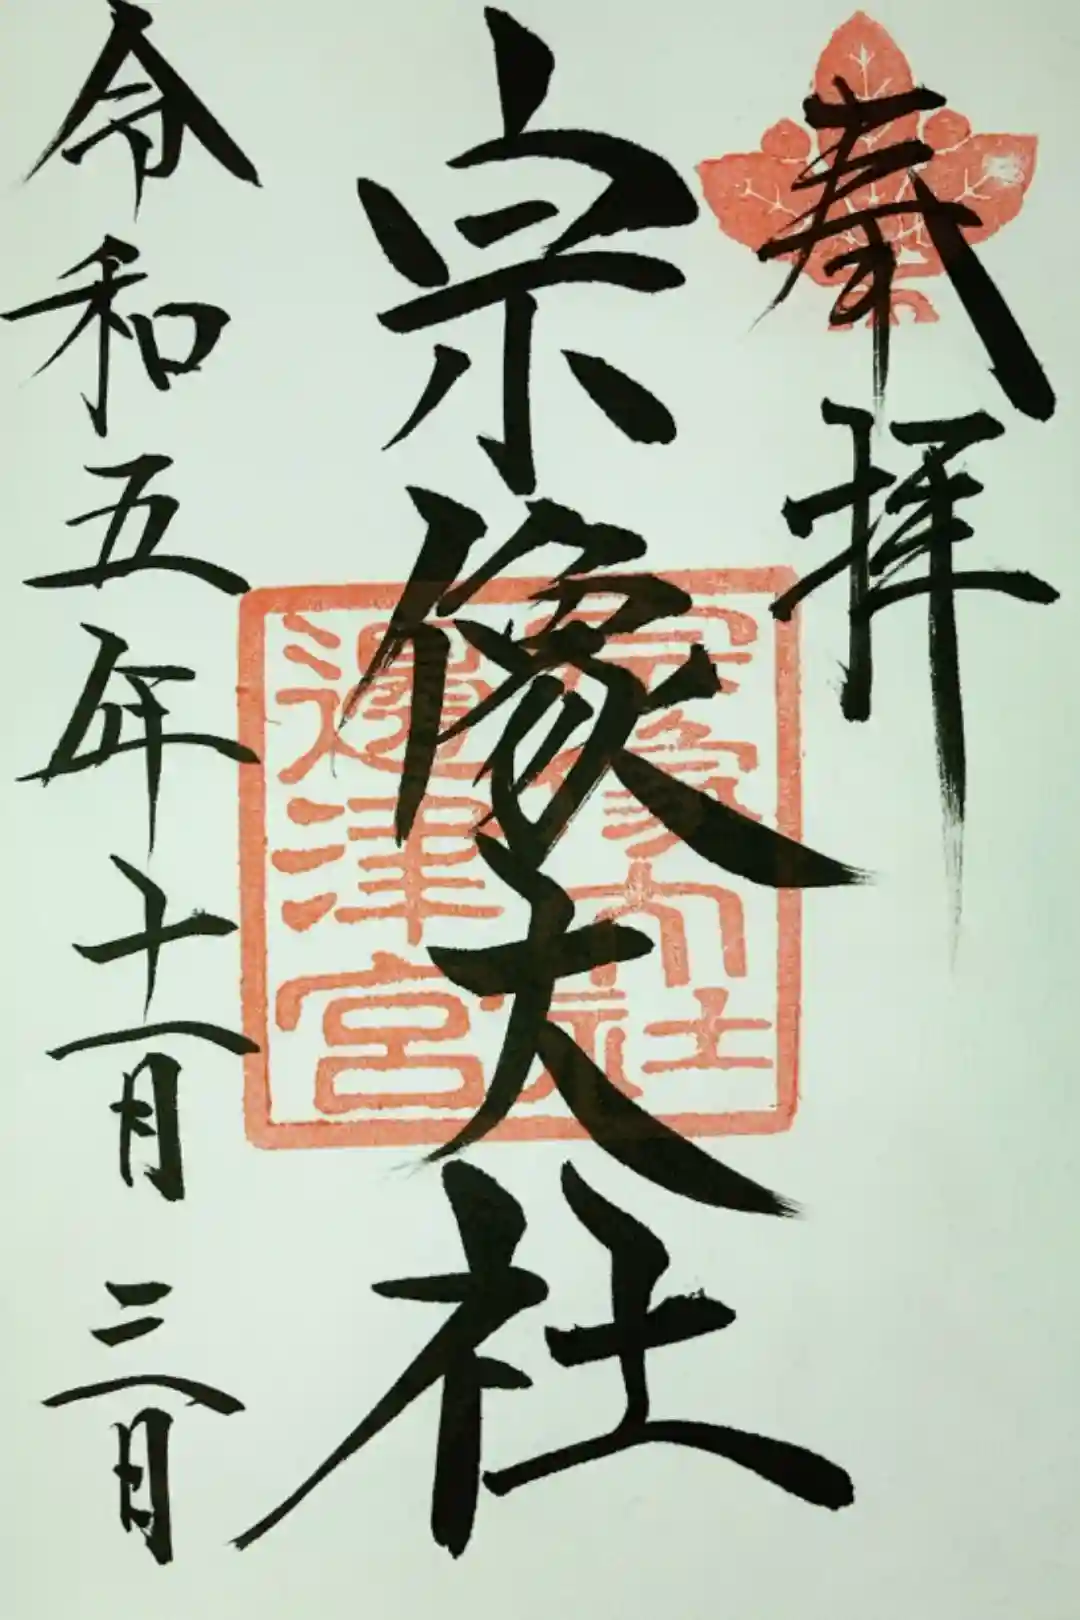 奉拝
宗像大社
令和五年十一月三日
宗像大社
邊津宮